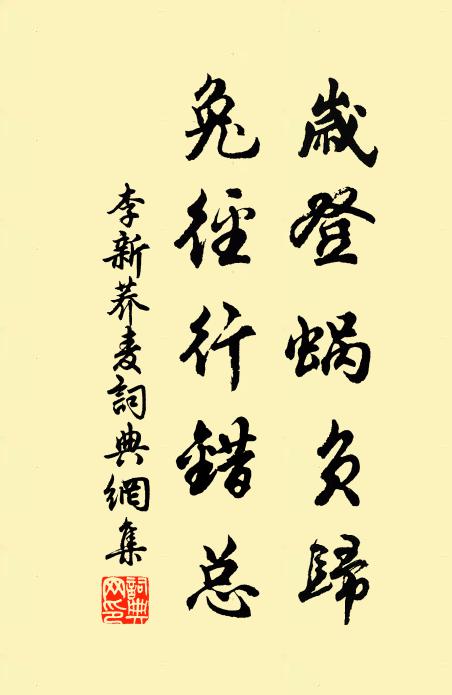 歲登蝸負歸
兔徑行錯总
李新蕎麥詞典網集
詞典网印